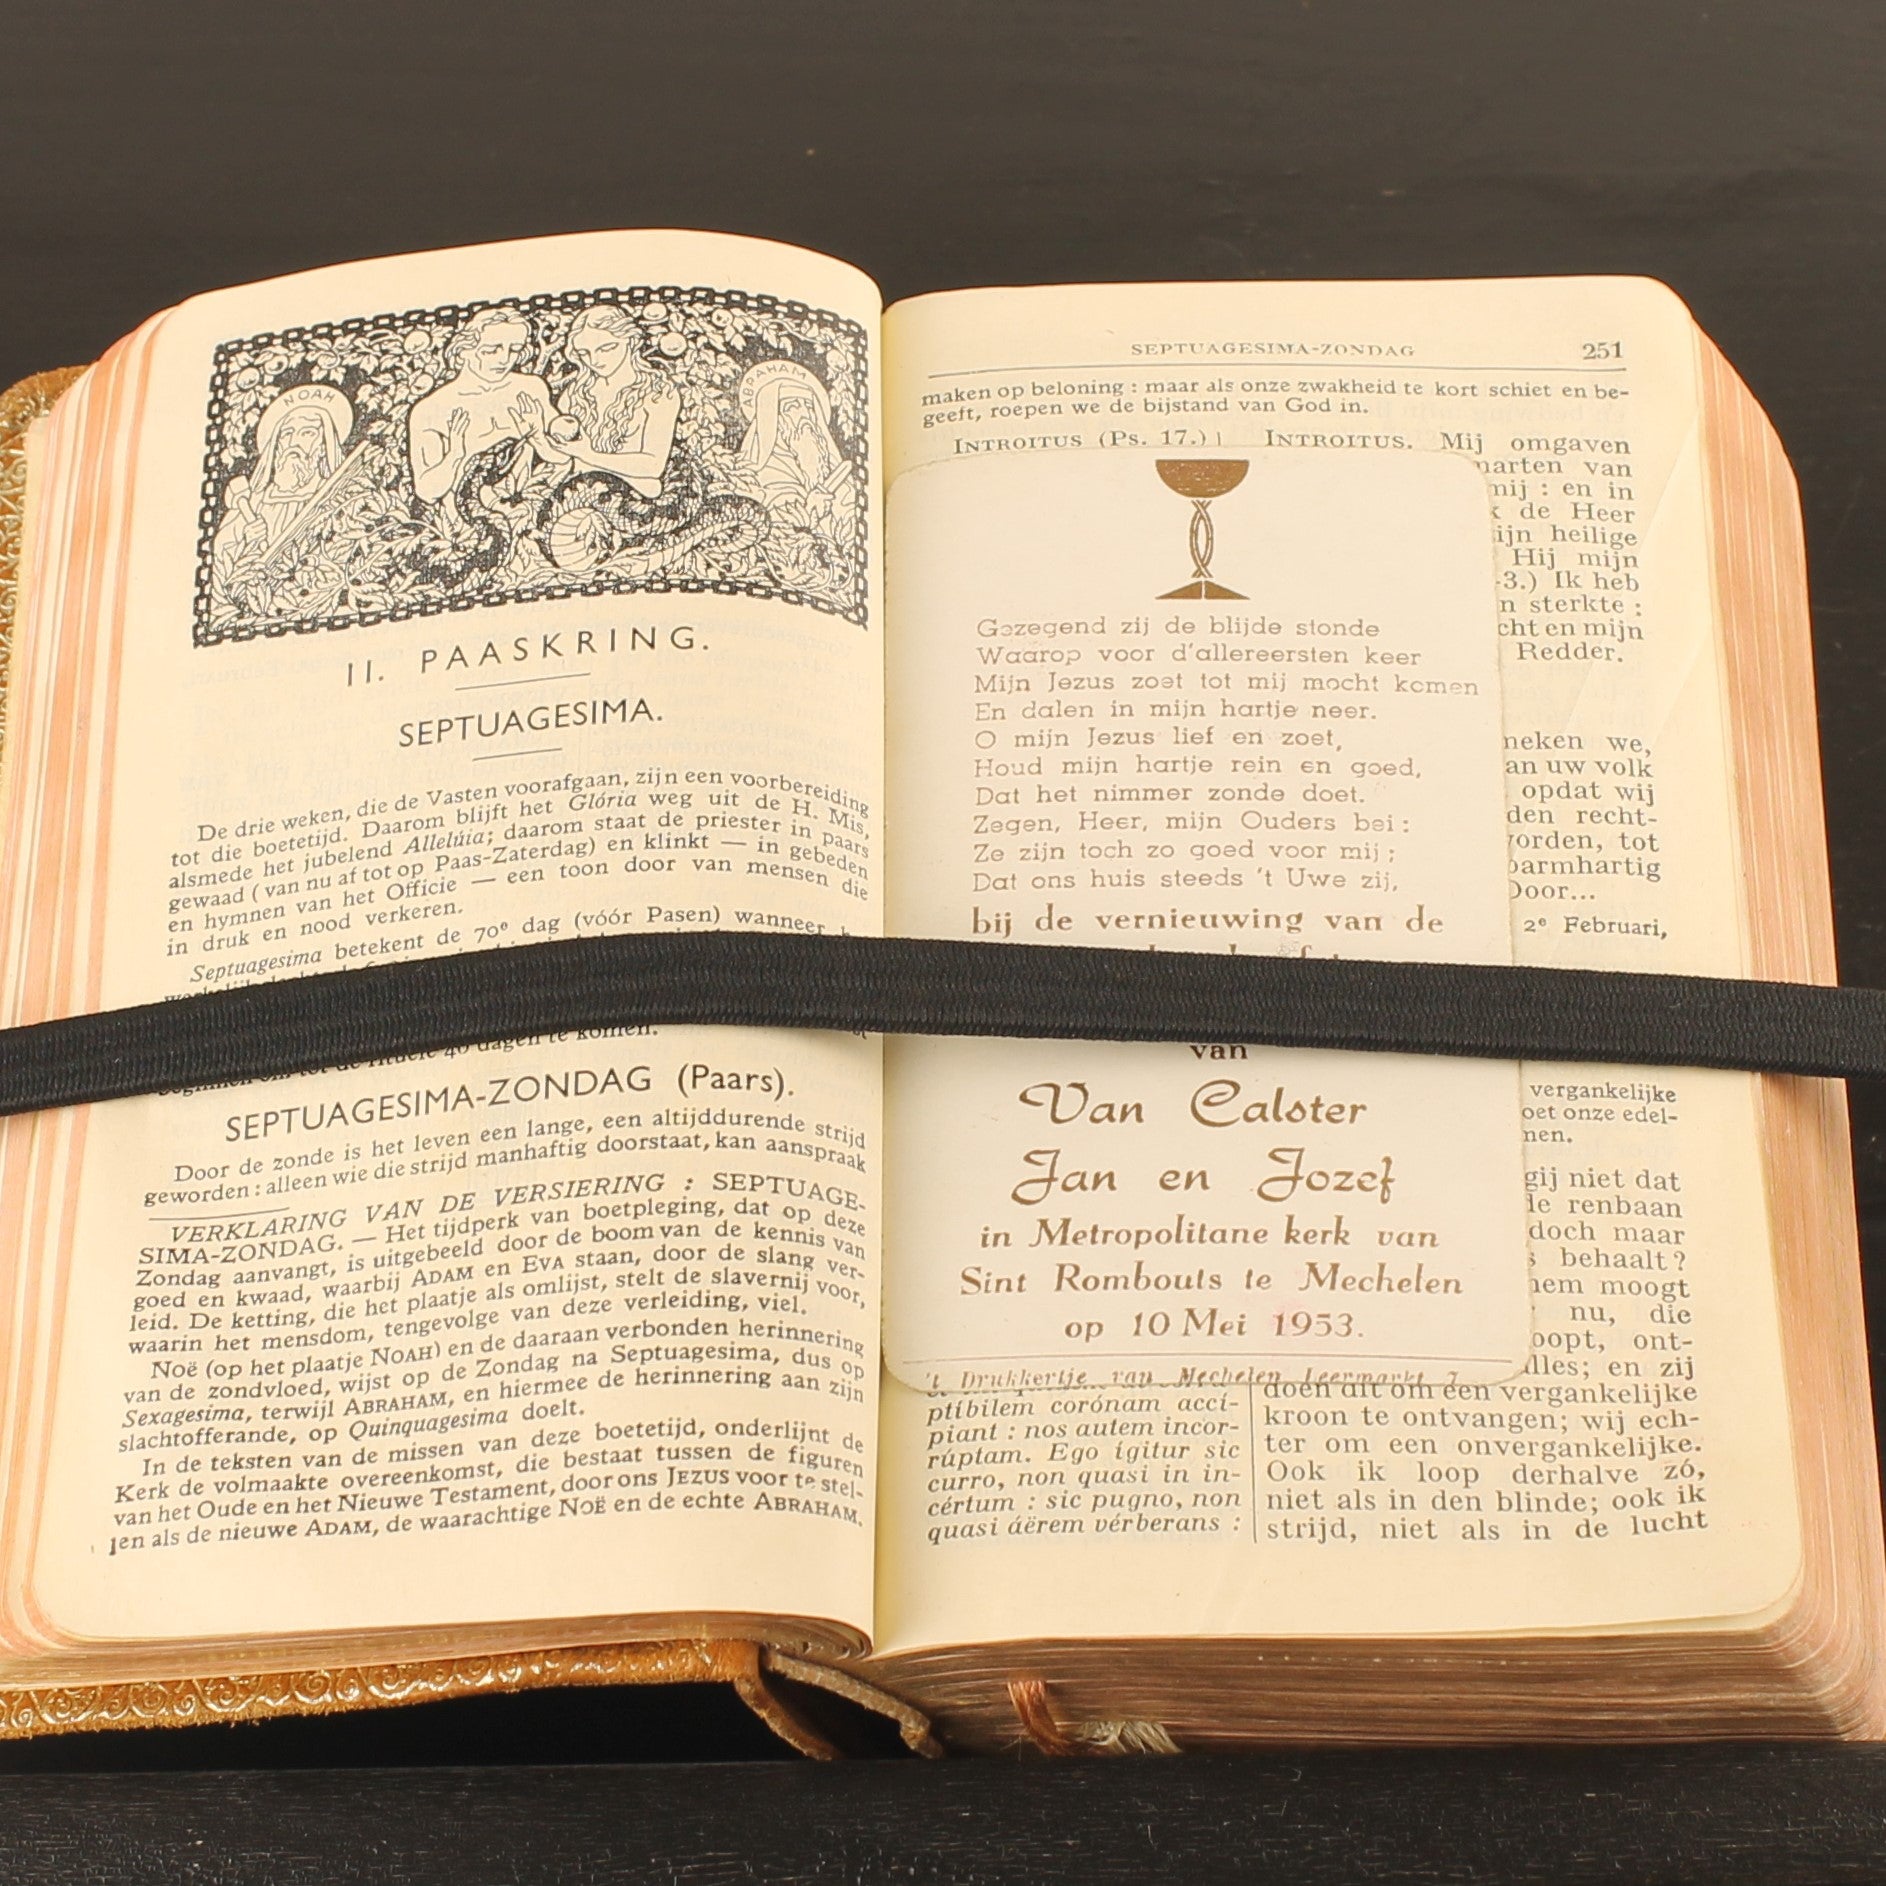 NOAH
ABRAHAM
II. PAASKRING.
SEPTUAGESIMA.
De drie weken, die de Vasten voorafgaan, zijn een voorbereiding
tot die boetetijd. Daarom blijft het Glória weg uit de H. Mis,
alsmede het jubelend Allelúia; daarom staat de priester in paars
gewaad (van nu af tot op Paas-Zaterdag) en klinkt — in gebeden
en hymnen van het Officie — een toon door van mensen die
in druk en nood verkeren.
Septuagesima betekent de 70e dag (vóór Pasen) wanneer
40 dagen te komen.
SEPTUAGESIMA-ZONDAG (Paars).
Door de zonde is het leven een lange, een altijddurende strijd
geworden: alleen wie die strijd manhaftig doorstaat, kan aanspraak
VERKLARING VAN DE VERSIERING : SEPTUAGE-
SIMA-ZONDAG. — Het tijdperk van boetpleging, dat op deze
Zondag aanvangt, is uitgebeeld door de boom van de kennis van
goed en kwaad, waarbij ADAM en EVA staan, door de slang ver-
leid. De ketting, die het plaatje als omlijst, stelt de slavernij voor,
waarin het mensdom, tengevolge van deze verleiding, viel.
Noë (op het plaatje NOAH) en de daaraan verbonden herinnering
van de zondvloed, wijst op de Zondag na Septuagesima, dus op
Sexagesima, terwijl ABRAHAM, en hiermee de herinnering aan zijn
slachtofferande, op Quinquagesima doelt.
In de teksten van de missen van deze boetetijd, onderlijnt de
Kerk de volmaakte overeenkomst, die bestaat tussen de figuren
van het Oude en het Nieuwe Testament, door ons JEZUS voor te stel-
len als de nieuwe ADAM, de waarachtige NOË en de echte ABRAHAM.
SEPTUAGESIMA-ZONDAG 251
maken op beloning : maar als onze zwakheid te kort schiet en be-
geeft, roepen we de bijstand van God in.
INTROITUS (Ps. 17.) INTROITUS. Mij omgaven
van
mij : en in
de Heer
heilige
Hij mijn
Ik heb
sterkte :
en mijn
Redder.
we,
uw volk
opdat wij
recht-
tot
barmhartig
Door...
2e Februari,
vergankelijke
onze edel-
gij niet dat
renbaan
doch maar
behaalt?
moogt
nu, die
ont-
en zij
Gezegend zij de blijde stonde
Waarop voor d'allereersten keer
Mijn Jezus zoet tot mij mocht komen
En dalen in mijn hartje neer.
O mijn Jezus lief en zoet,
Houd mijn hartje rein en goed,
Dat het nimmer zonde doet.
Zegen, Heer, mijn Ouders bei :
Ze zijn toch zo goed voor mij ;
Dat ons huis steeds 't Uwe zij,
bij de vernieuwing van de
van
Van Calster
Jan en Jozef
in Metropolitane kerk van
Sint Rombouts te Mechelen
op 10 Mei 1953.
't Drukkertje van Mechelen Leermarkt 7
ptíbilem corónam accí-
piant : nos autem incor-
rúptam. Ego ígitur sic
curro, non quasi in in-
cértum : sic pugno, non
quasi áërem vérberans :
doen dit om een vergankelijke
kroon te ontvangen; wij ech-
ter om een onvergankelijke.
Ook ik loop derhalve zó,
niet als in den blinde; ook ik
strijd, niet als in de lucht